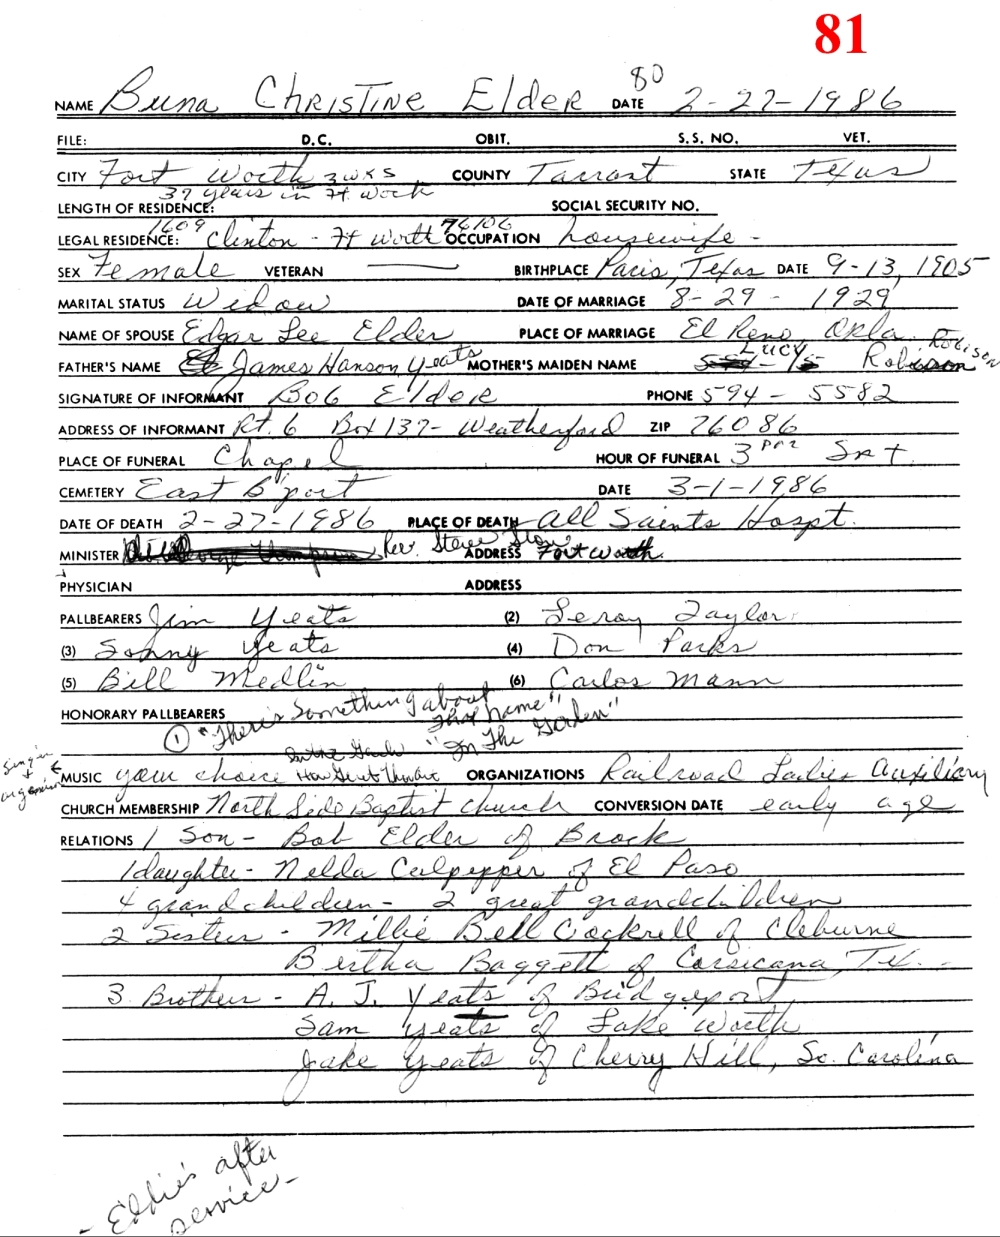 81
80
NAME Buna Christine Elder DATE 2-27-1986
FILE: D.C. OBIT. S.S. NO. VET.
CITY Fort Worth 3 wks COUNTY Tarrant STATE Texas
37 years in Ft Worth
LENGTH OF RESIDENCE: SOCIAL SECURITY NO.
LEGAL RESIDENCE: 1609 Clinton - Ft Worth 76106 OCCUPATION housewife -
SEX Female VETERAN BIRTHPLACE Paris, Texas DATE 9-13, 1905
MARITAL STATUS Widow DATE OF MARRIAGE 8-29-1929
NAME OF SPOUSE Edgar Lee Elder PLACE OF MARRIAGE El Reno Okla.
FATHER'S NAME James Hanson Yeats MOTHER'S MAIDEN NAME Lucy Robison
SIGNATURE OF INFORMANT Bob Elder PHONE 594-5582
ADDRESS OF INFORMANT Rt. 6 Box 137- Weatherford ZIP 76086
PLACE OF FUNERAL Chapel HOUR OF FUNERAL 3 pm Sat
CEMETERY East B'port DATE 3-1-1986
DATE OF DEATH 2-27-1986 PLACE OF DEATH All Saints Hospt.
MINISTER Rev. Steve ADDRESS Fort Worth
PHYSICIAN ADDRESS
PALLBEARERS Jim Yeats (2) Leroy Taylor
(3) Sonny Yeats (4) Don Parks
(5) Bill Medlin (6) Carlos Mann
HONORARY PALLBEARERS
① "There's Something about that name"
"In The Garden"
MUSIC your choice How Great Thou Art ORGANIZATIONS Railroad Ladies Auxiliary
CHURCH MEMBERSHIP North Side Baptist church CONVERSION DATE early age
RELATIONS 1 Son - Bob Elder of Brock
1 daughter - Nelda Culpepper of El Paso
4 grandchildren - 2 great grandchildren
2 Sisters - Millie Bell Cockrell of Cleburne
Bertha Baggett of Corsicana, Tex.
3 Brothers - A. J. Yeats of Bridgeport,
Sam Yeats of Lake Worth
Jake Yeats of Cherry Hill, So. Carolina
- Eddie's after
service -